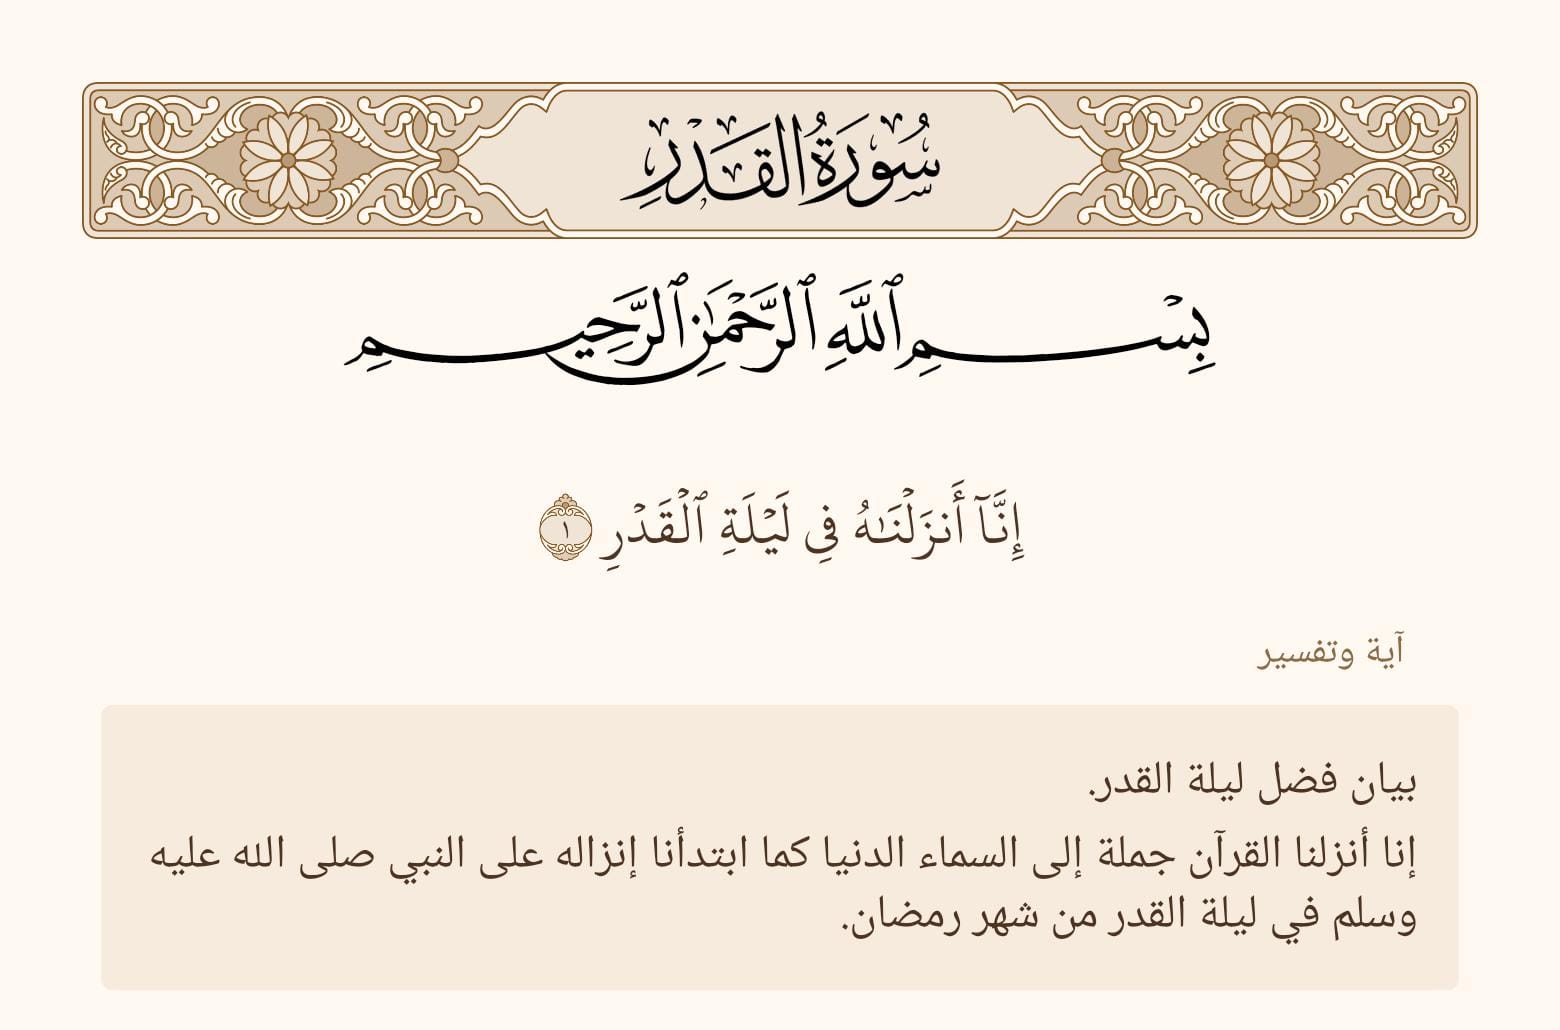 سُورَةُ القَدْرِ
بِسْمِ ٱللَّهِ ٱلرَّحْمَٰنِ ٱلرَّحِيمِ
إِنَّآ أَنزَلْنَٰهُ فِي لَيْلَةِ ٱلْقَدْرِ ١
آية وتفسير
بيان فضل ليلة القدر.
إنا أنزلنا القرآن جملة إلى السماء الدنيا كما ابتدأنا إنزاله على النبي صلى الله عليه
وسلم في ليلة القدر من شهر رمضان.